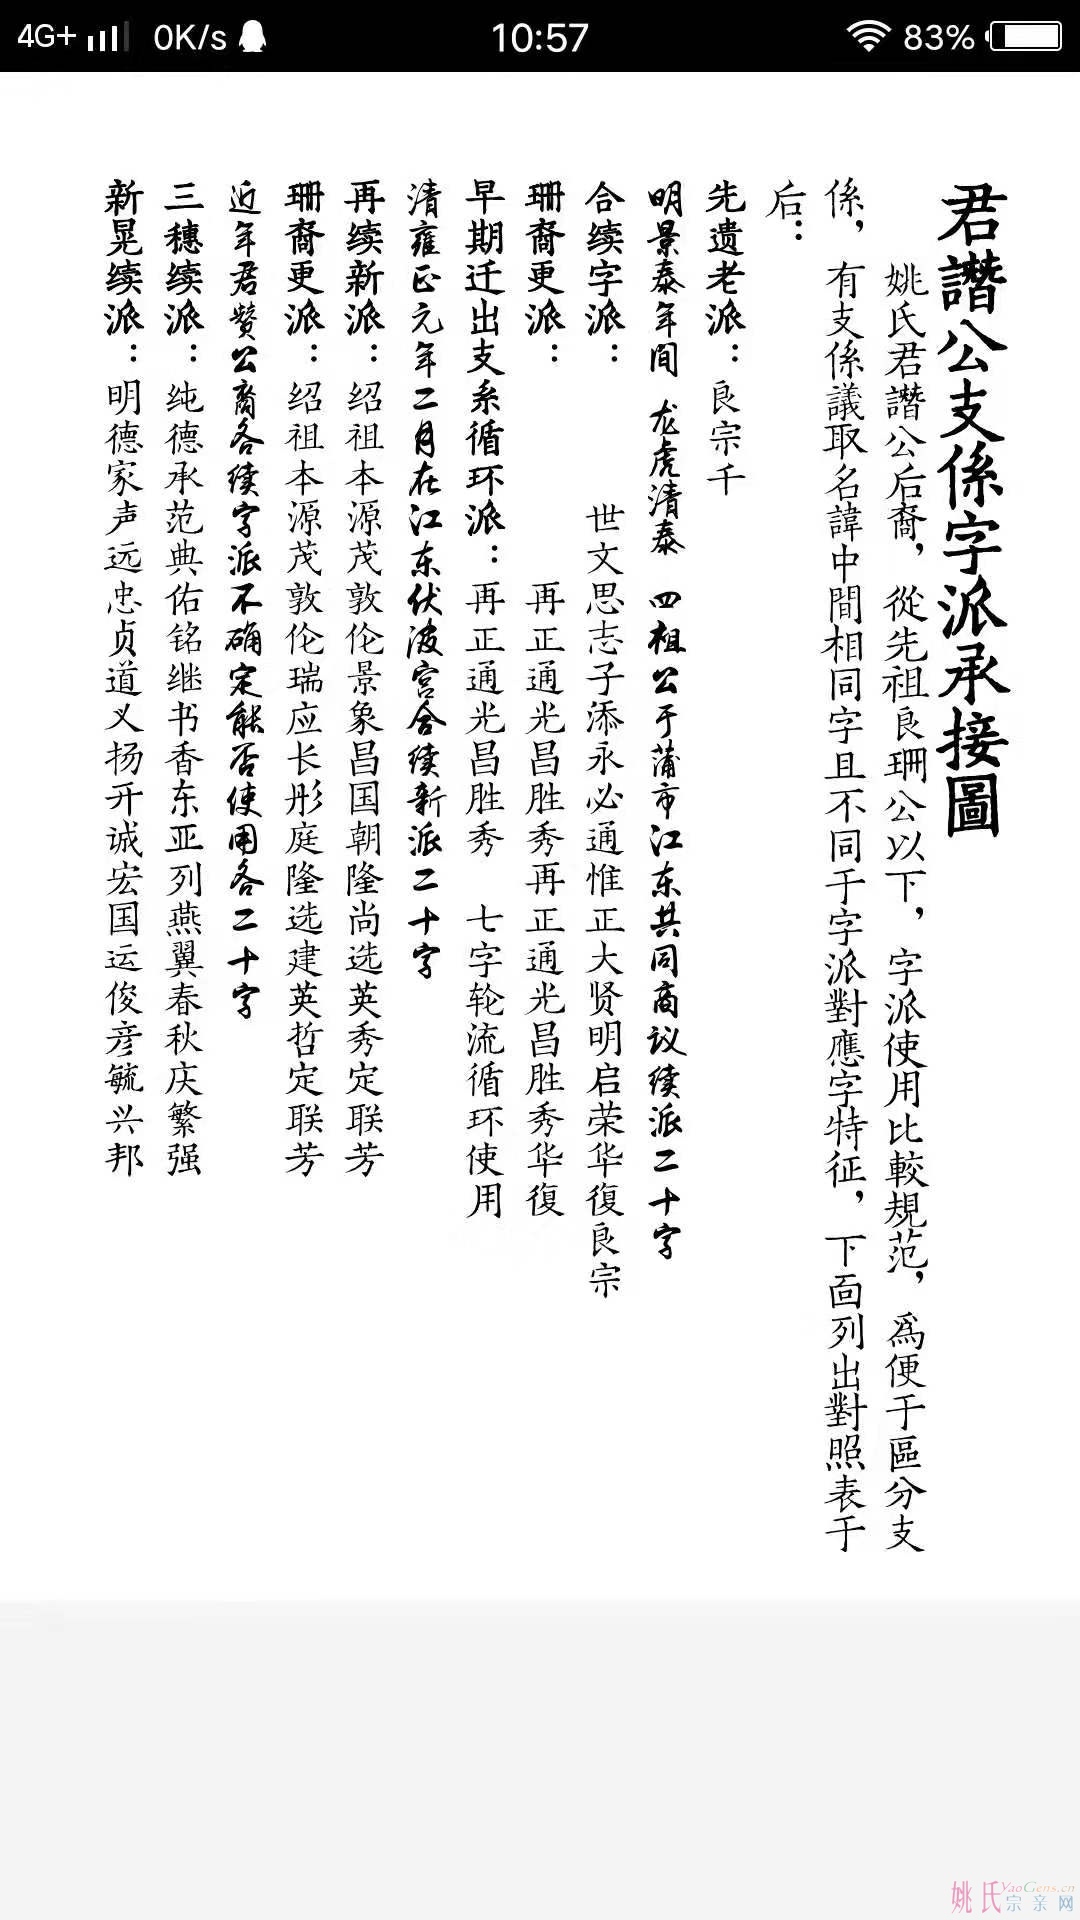 4G+ 0K/s 10:57 83%
君譖公支係字派承接圖
姚氏君譖公后裔，從先祖良珊公以下，字派使用比較規范，爲便于區分支
係，有支係議取名諱中間相同字且不同于字派對應字特征，下面列出對照表于
后：
先遗老派：良宗千
明景泰年间 龙虎清泰 四祖公于蒲市江东共同商议续派二十字
合续字派： 世文思志子添永必通惟正大贤明启荣华復良宗
珊裔更派： 再正通光昌胜秀再正通光昌胜秀华復
早期迁出支系循环派：再正通光昌胜秀 七字轮流循环使用
清雍正元年二月在江东伏波宫合续新派二十字
再续新派：绍祖本源茂敦伦景象昌国朝隆尚选英秀定联芳
珊裔更派：绍祖本源茂敦伦瑞应长彤庭隆选建英哲定联芳
近年君赞公裔各续字派不确定能否使用各二十字
三穗续派：纯德承范典佑铭继书香东亚列燕翼春秋庆繁强
新晃续派：明德家声远忠贞道义扬开诚宏国运俊彦毓兴邦
姚氏YaoGens.cn
宗亲网